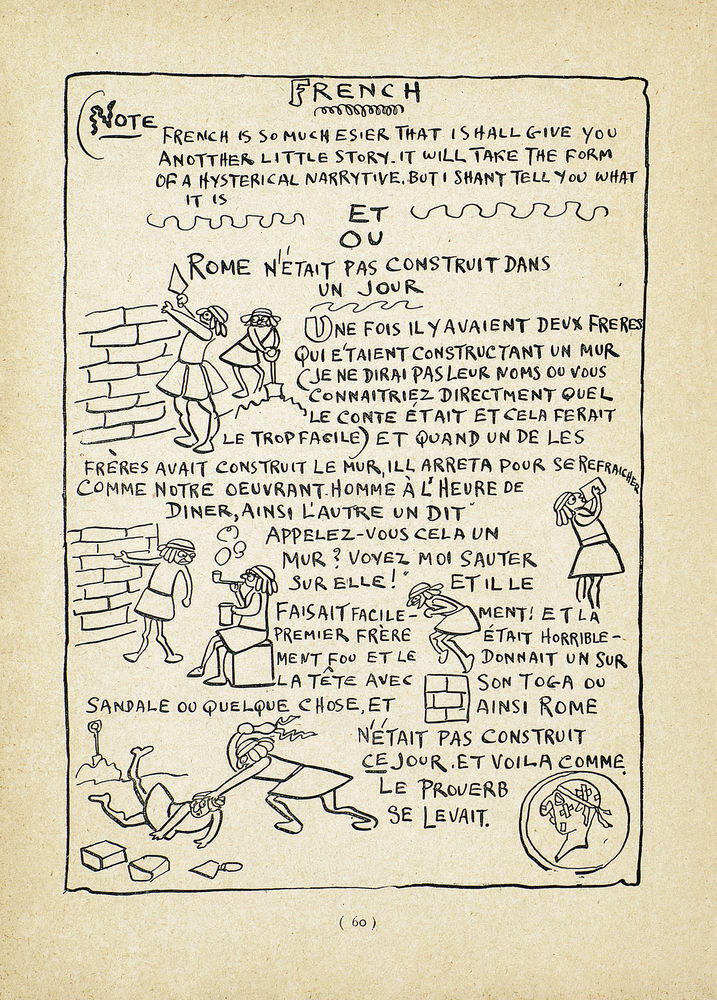 FRENCH
NOTE
FRENCH IS SO MUCH ESIER THAT I SHALL GIVE YOU
ANOTTHER LITTLE STORY. IT WILL TAKE THE FORM
OF A HYSTERICAL NARRYTIVE. BUT I SHANT TELL YOU WHAT
IT IS
ET
OU
ROME N'ÉTAIT PAS CONSTRUIT DANS
UN JOUR
UNE FOIS IL Y AVAIENT DEUX FRERES
QUI E'TAIENT CONSTRUCTANT UN MUR
(JE NE DIRAI PAS LEUR NOMS OU VOUS
CONNAITRIEZ DIRECTMENT QUEL
LE CONTE ÉTAIT ET CELA FERAIT
LE TROP FACILE) ET QUAND UN DE LES
FRÈRES AVAIT CONSTRUIT LE MUR, ILL ARRETA POUR SE REFRAICHER
COMME NOTRE OEUVRANT. HOMME À L'HEURE DE
DINER, AINSI L'AUTRE UN DIT"
APPELEZ-VOUS CELA UN
MUR? VOYEZ MOI SAUTER
SUR ELLE!" ET IL LE
FAISAIT FACILE- MENT! ET LA
PREMIER FRÈRE ÉTAIT HORRIBLE-
MENT FOU ET LE DONNAIT UN SUR
LA TÊTE AVEC SON TOGA OU
SANDALE OU QUELQUE CHOSE, ET AINSI ROME
N'ÉTAIT PAS CONSTRUIT
CE JOUR. ET VOILA COMME
LE PROVERB
SE LEVAIT.
( 60 )